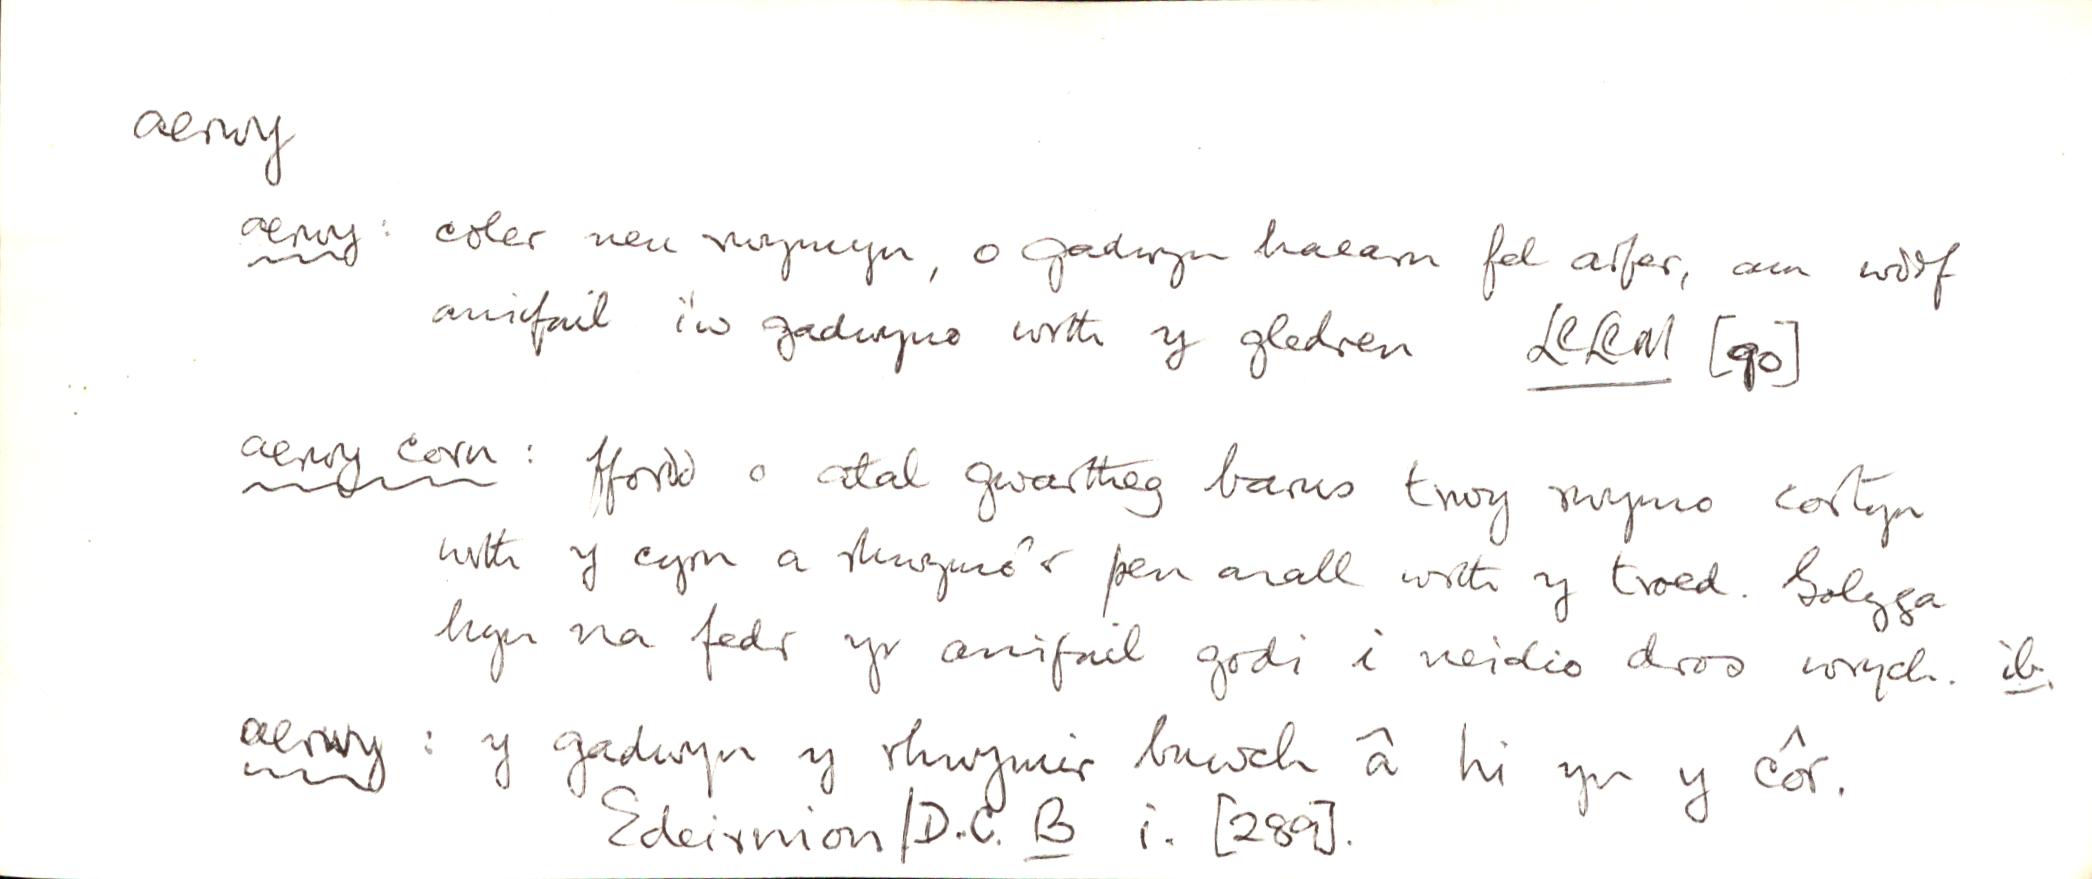 aerwy
aerwy: coler neu rwymyn, o gadwyn haearn fel arfer, am wddf
anifail i'w gadwyno wrth y gledren LlLlM [90]
aerwy corn: ffordd o atal gwartheg barus trwy rwymo cortyn
wrth y cyrn a rhwymo'r pen arall wrth y troed. Golyga
hyn na fedr yr anifail godi i neidio dros wrych. ib.
aerwy: y gadwyn y rhwymir buwch â hi yn y côr.
Edeirnion/D.C. B i. [289].